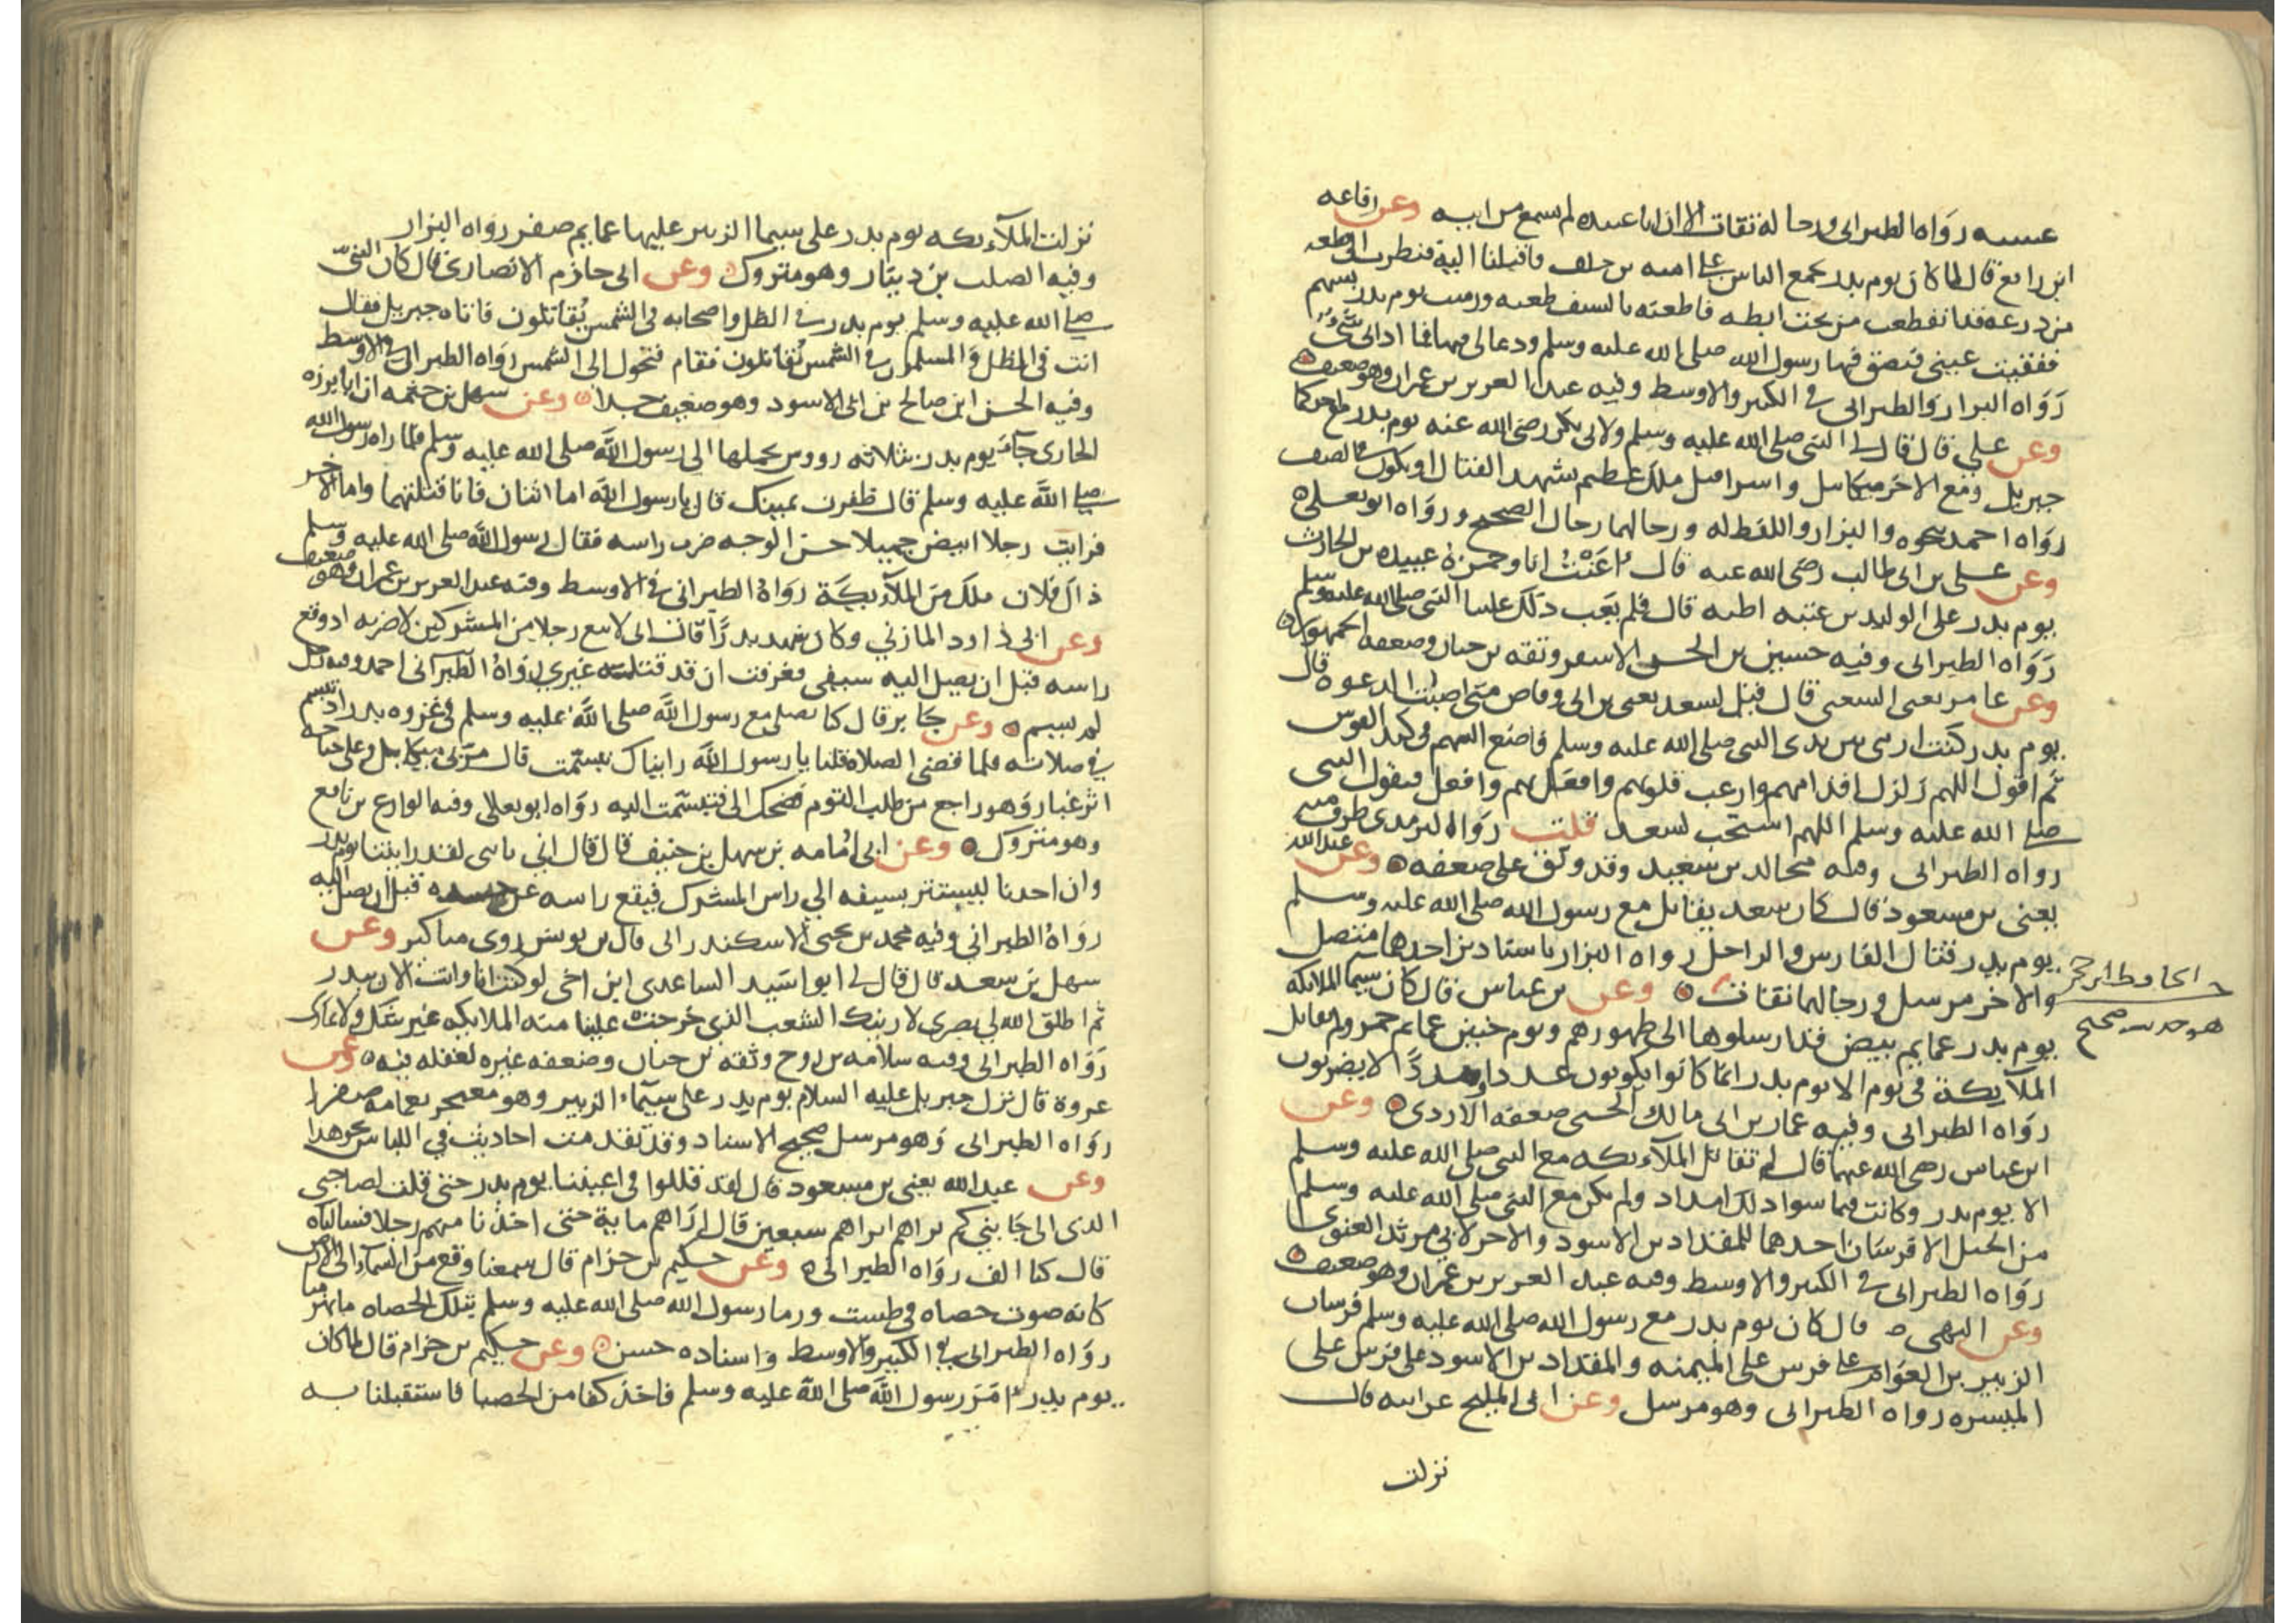 عبيده رواه الطبراني ورجاله ثقات الا ان ابا عبيده لم يسمع من ابيه وعن رفاعه
ابن رافع قال لما كان يوم بدر تجمع الناس على اميه بن خلف فاقبلنا اليه فنظرت الى قطعه
من درعه قد انقطعت من تحت ابطه فاطعنه بالسيف طعنه ورميت يوم بدر بسهم
ففقيت عيني فبصق فيها رسول الله صلى الله عليه وسلم ودعا لي فيها فما اذاني شيء
رواه البزار والطبراني في الكبير والاوسط وفيه عبد العزيز بن عمران وهو ضعيف
وعن علي قال قال لي النبي صلى الله عليه وسلم ولابي بكر رضي الله عنه يوم بدر مع احدكما
جبريل ومع الاخر ميكاييل واسرافيل ملك عظيم يشهد القتال او يكون في الصف
رواه احمد بنحوه والبزار واللفظ له ورجالهما رجال الصحيح ورواه ابو يعلى
وعن علي بن ابي طالب رضي الله عنه قال اعنت انا وحمزة عبيده بن الحارث
يوم بدر على الوليد بن عتبه اظنه قال فلم يعب ذلك علينا النبي صلى الله عليه وسلم
رواه الطبراني وفيه حسين بن الحسن الاشقر وثقه بن حبان وضعفه الجمهور
وعن عامر يعني الشعبي قال قيل لسعد يعني بن ابي وقاص متى اصبت الدعوه قال
يوم بدر كنت ارمي بين يدي النبي صلى الله عليه وسلم فاضع السهم في كبد القوس
ثم اقول اللهم زلزل اقدامهم وارعب قلوبهم وافعل بهم وافعل فيقول النبي
صلى الله عليه وسلم اللهم استجب لسعد قلت رواه الترمذي طرف منه
رواه الطبراني وفيه مجالد بن سعيد وقد وثق على ضعفه وعن عبد الله
يعني بن مسعود قال كان سعد يقاتل مع رسول الله صلى الله عليه وسلم
يوم بدر قتال الفارس والراجل رواه البزار باسنادين احدهما متصل
والاخر مرسل ورجالهما ثقات وعن بن عباس قال كان سيما الملايكه
الحافظ ابن حجر
هو حديث صحيح
يوم بدر عمايم بيض قد ارسلوها الى ظهورهم ويوم حنين عمايم حمر ولم تقاتل
الملآيكة في يوم الا يوم بدر انما كانوا يكونون عددا ومددًا لا يضربون
رواه الطبراني وفيه عمار بن ابي مالك الجنبي ضعفه الازدي وعن
ابن عباس رضي الله عنهما قال لم تقاتل الملآيكه مع النبي صلى الله عليه وسلم
الا يوم بدر وكانت فيما سوا ذلك امداد ولم يكن مع النبي صلى الله عليه وسلم
من الخيل الا فرسان احدهما للمقداد بن الاسود والاخر لابي مرثد الغنوي
رواه الطبراني في الكبير والاوسط وفيه عبد العزيز بن عمران وهو ضعيف
وعن البهي قال كان يوم بدر مع رسول الله صلى الله عليه وسلم فرسان
الزبير بن العوام على فرس على الميمنه والمقداد بن الاسود على فرس على
الميسره رواه الطبراني وهو مرسل وعن ابي المليح عن ابيه قال
نزلت
نزلت الملآيكه يوم بدر على سيما الزبير عليها عمايم صفر رواه البزار
وفيه الصلت بن دينار وهو متروك وعن ابي حازم الانصاري قال كان النبي
صلى الله عليه وسلم يوم بدر في الظل واصحابه في الشمس يُقاتلون فاتاه جبريل فقال
انت في الظل والمسلمون في الشمس يُقاتلون فقام فتحول الى الشمس رواه الطبراني في الاوسط
وفيه الحسن ابن صالح بن ابي الاسود وهو ضعيف جدا وعن سهل بن حثمه ان ابا برزه
الحارثي جآء يوم بدر بثلاثه رووس يحملها الى رسول الله صلى الله عليه وسلم فلما راه رسول الله
صلى الله عليه وسلم قال ظفرت يمينك قال يا رسول الله اما اثنان فانا قتلتهما واما الاخر
فرايت رجلا ابيض جميلا حسن الوجه ضرب راسه فقال رسول الله صلى الله عليه وسلم
ذاك فلان ملك من الملآيكة رواه الطبراني في الاوسط وفيه عبد العزيز بن عمران وهو ضعيف
وعن ابي داود المازني وكان شهد بدرًا قال اني لاتبع رجلا من المشركين لاضربه اذ وقع
راسه قبل ان يصل اليه سيفي فعرفت ان قد قتله غيري رواه الطبراني احمد وفيه رجل
لم يسم وعن جابر قال كنا نصلي مع رسول الله صلى الله عليه وسلم في غزوه بدر اذ تبسم
في صلاته فلما قضى الصلاه قلنا يا رسول الله رايناك تبسمت قال مر بي ميكاييل وعلى جناحه
اثر غبار وهو راجع من طلب القوم فضحك الي فتبسمت اليه رواه ابو يعلى وفيه الوازع بن نافع
وهو متروك وعن ابي امُامه بن سهل بن حنيف قال قال ابي يا بني لقد رايتنا يوم بدر
وان احدنا ليشير بسيفه الي راس المشرك فيقع راسه عن جسده قبل ان يصل اليه
رواه الطبراني وفيه محمد بن يحيى الاسكندراني قال بن يونس روى مناكير وعن
سهل بن سعد قال قال لي ابو اسَيد الساعدي ابن اخي لو كنت انا وانت الان ببدر
ثم اطلق الله لي بصري لاريتك الشعب الذي خرجت علينا منه الملايكه غير شك ولا تمار
رواه الطبراني وفيه سلامه بن روح وثقه بن حبان وضعفه غيره لغفله فيه وعن
عروة قال نزل جبريل عليه السلام يوم بدر على سيمآء الزبير وهو معتجر بعمامه صفرا
رواه الطبراني وهو مرسل صحيح الاسناد وقد تقدمت احاديث في اللباس بنحو هذا
وعن عبد الله يعني بن مسعود قال لقد قللوا في اعيننا يوم بدر حتى قلت لصاحبي
الذي الى جانبي كم تراهم اتراهم سبعين قال اراهم ماية حتى اخذنا منهم رجلا فسالناه
قال كنا الف رواه الطبراني وعن حكيم بن حزام قال سمعنا وقع من السمآء الى الارض
كانه صوت حصاه في طست ورما رسول الله صلى الله عليه وسلم بتلك الحصاه فانهزمنا
رواه الطبراني في الكبير والاوسط واسناده حسن وعن حكيم بن حزام قال لما كان
يوم بدر امر رسول الله صلى الله عليه وسلم فاخذ كفا من الحصبا فاستقبلنا به